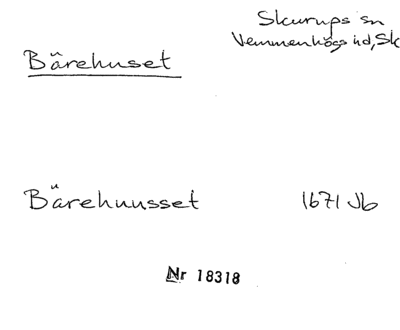 Skurups sn
Vemmenhögs hd, Sk
Bärehuset
Bärehuusset 1671 Jb
Nr 18318